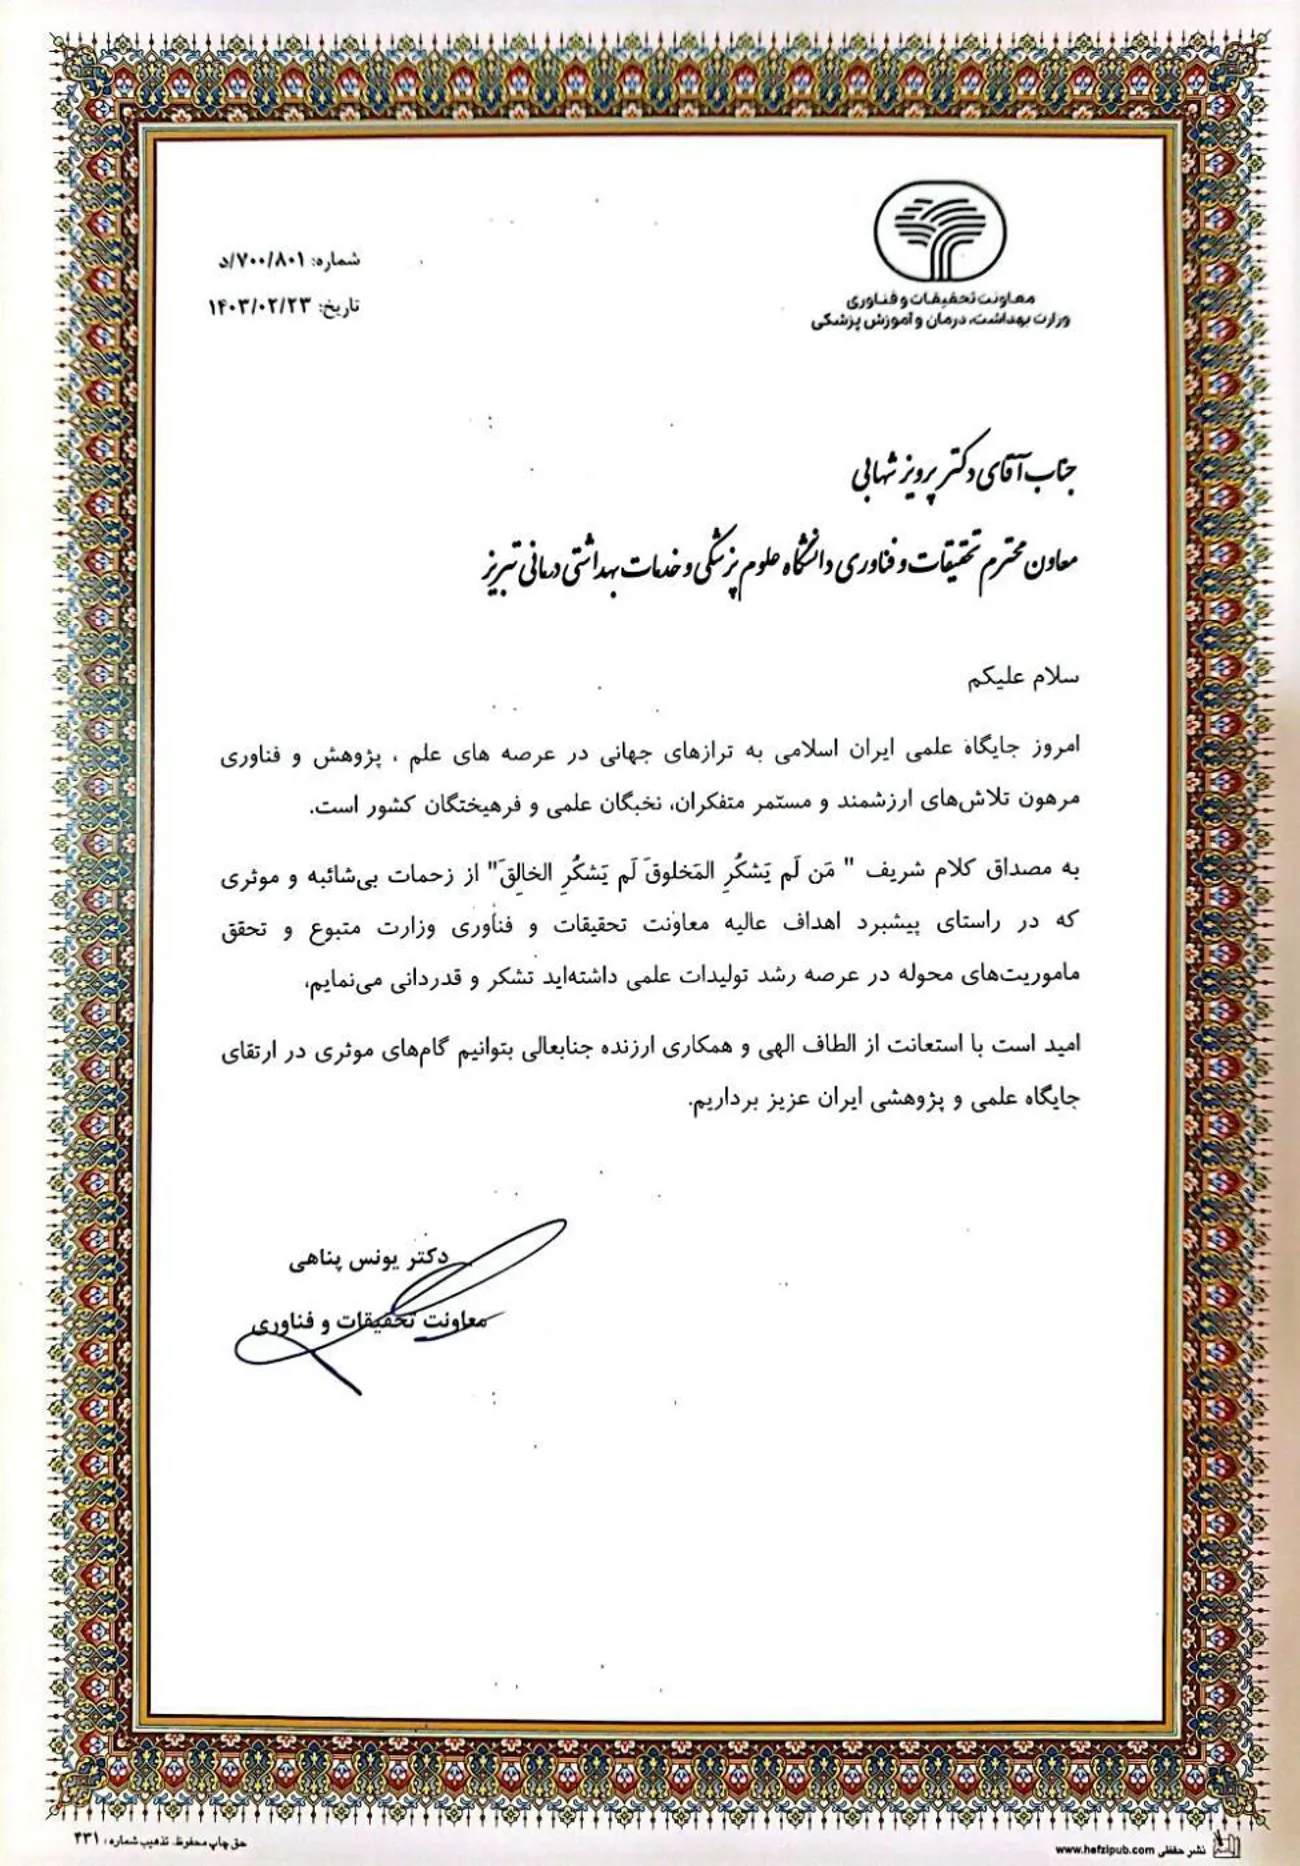 معاونت تحقیقات و فناوری
وزارت بهداشت، درمان و آموزش پزشکی
شماره: ۷۰۰/۸۰۱/د
تاریخ: ۱۴۰۳/۰۲/۲۳
جناب آقای دکتر پرویز شهابی
معاون محترم تحقیقات و فناوری دانشگاه علوم پزشکی و خدمات بهداشتی درمانی تبریز
سلام علیکم
امروز جایگاه علمی ایران اسلامی به ترازهای جهانی در عرصه های علم ، پژوهش و فناوری
مرهون تلاش‌های ارزشمند و مستمر متفکران، نخبگان علمی و فرهیختگان کشور است.
به مصداق کلام شریف " مَن لَم یَشکُرِ المَخلوقَ لَم یَشکُرِ الخالِقَ" از زحمات بی‌شائبه و موثری
که در راستای پیشبرد اهداف عالیه معاونت تحقیقات و فنآوری وزارت متبوع و تحقق
ماموریت‌های محوله در عرصه رشد تولیدات علمی داشته‌اید تشکر و قدردانی می‌نمایم.
امید است با استعانت از الطاف الهی و همکاری ارزنده جنابعالی بتوانیم گام‌های موثری در ارتقای
جایگاه علمی و پژوهشی ایران عزیز برداریم.
دکتر یونس پناهی
معاونت تحقیقات و فناوری
نشر حفظی www.hafzipub.com
حق چاپ محفوظ. تذهیب شماره: ۴۳۱